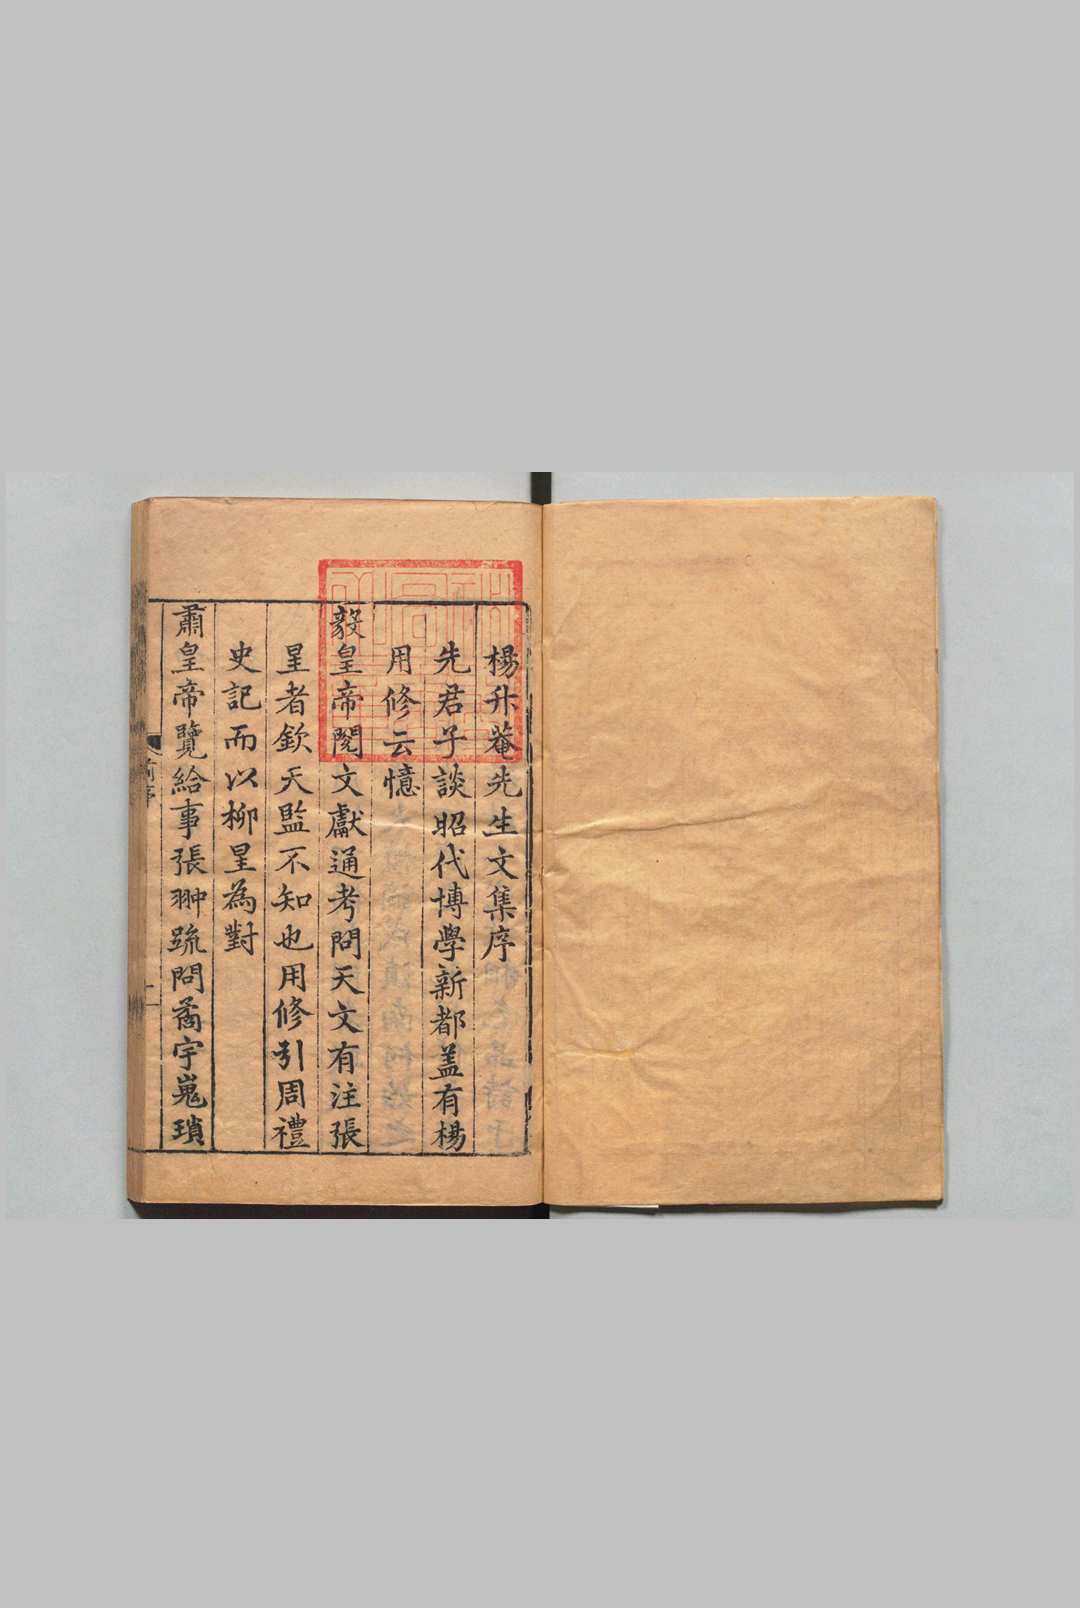 楊升菴先生文集序
先君子談昭代博學新都盖有楊
用修云憶
毅皇帝閱文獻通考問天文有注張
星者欽天監不知也用修引周禮
史記而以柳星為對
肅皇帝覽給事張翀疏問矞宇嵬瑣
前序
一